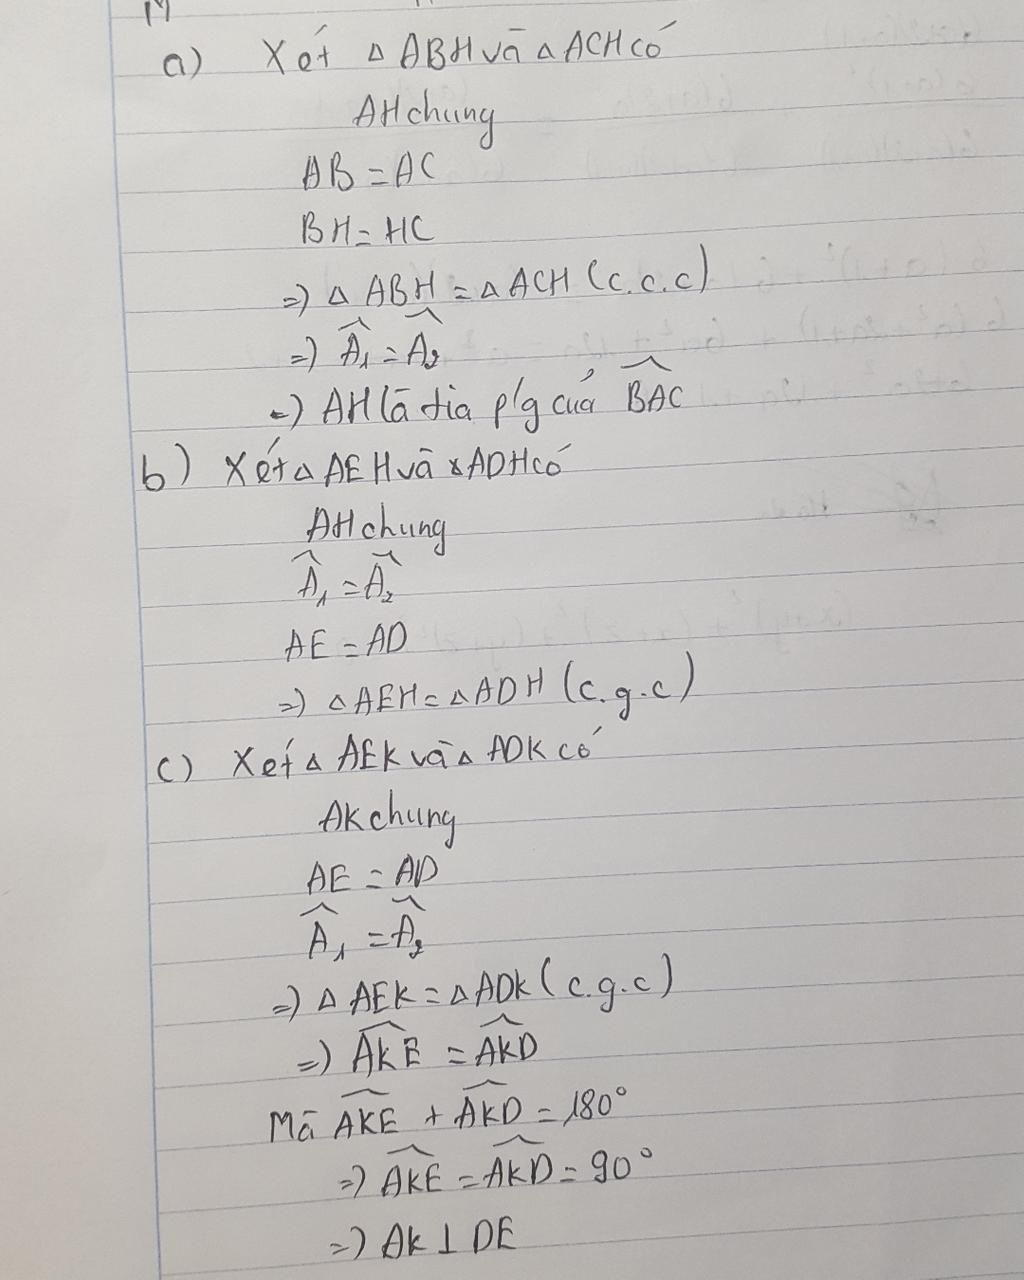 M
a) Xét △ ABH và △ ACH có
AH chung
AB = AC
BH = HC
=) △ ABH = △ ACH (c.c.c)
=) Â₁ = Â₂
=) AH là tia p/g của \widehat{BAC}
b) Xét △ AEH và △ ADH có
AH chung
Â₁ = Â₂
AE = AD
=) △ AEH = △ ADH (c.g.c)
c) Xét △ AEK và △ ADK có
AK chung
AE = AD
Â₁ = Â₂
=) △ AEK = △ ADK (c.g.c)
=) \widehat{AKE} = \widehat{AKD}
Mà \widehat{AKE} + \widehat{AKD} = 180°
=) \widehat{AKE} = \widehat{AKD} = 90°
=) AK ⊥ DE